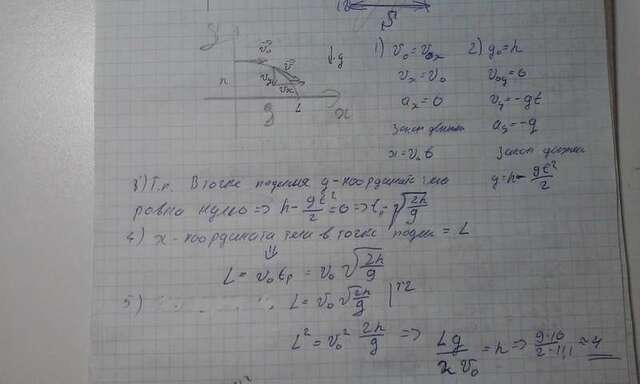 S
y
v₀
v
↓g
h
vₓ
0
L
x
1) v₀ = v₀ₓ
vₓ = v₀
aₓ = 0
Закон движен
x = v₀ t
2) y₀ = h
v₀y = 0
vy = -gt
ay = -g
Закон движен
y = h - gt²/2
3) Т.к. В точке падения y-координата тела
равна нулю => h - gt²/2 = 0 => tₚ = √(2h/g)
4) x-координата тела в точке паден = L
⇓
L = v₀ tₚ = v₀ √(2h/g)
5) L = v₀ √(2h/g) |↑2
L² = v₀² 2h/g => Lg/x v₀ = h => ≈ 4